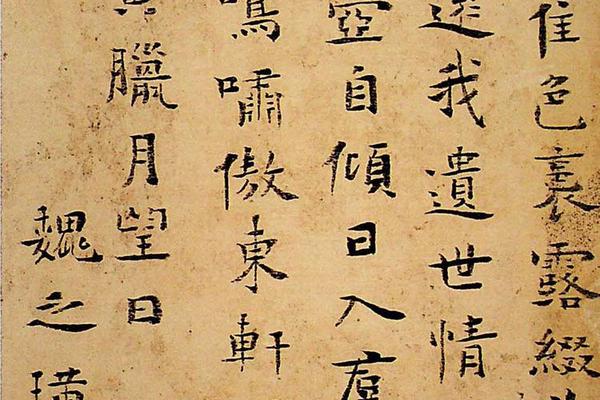 佳色裛露綴
遠我遺世情
壺自傾日入羣
鳴嘯傲東軒
臘月望日
魏之璜